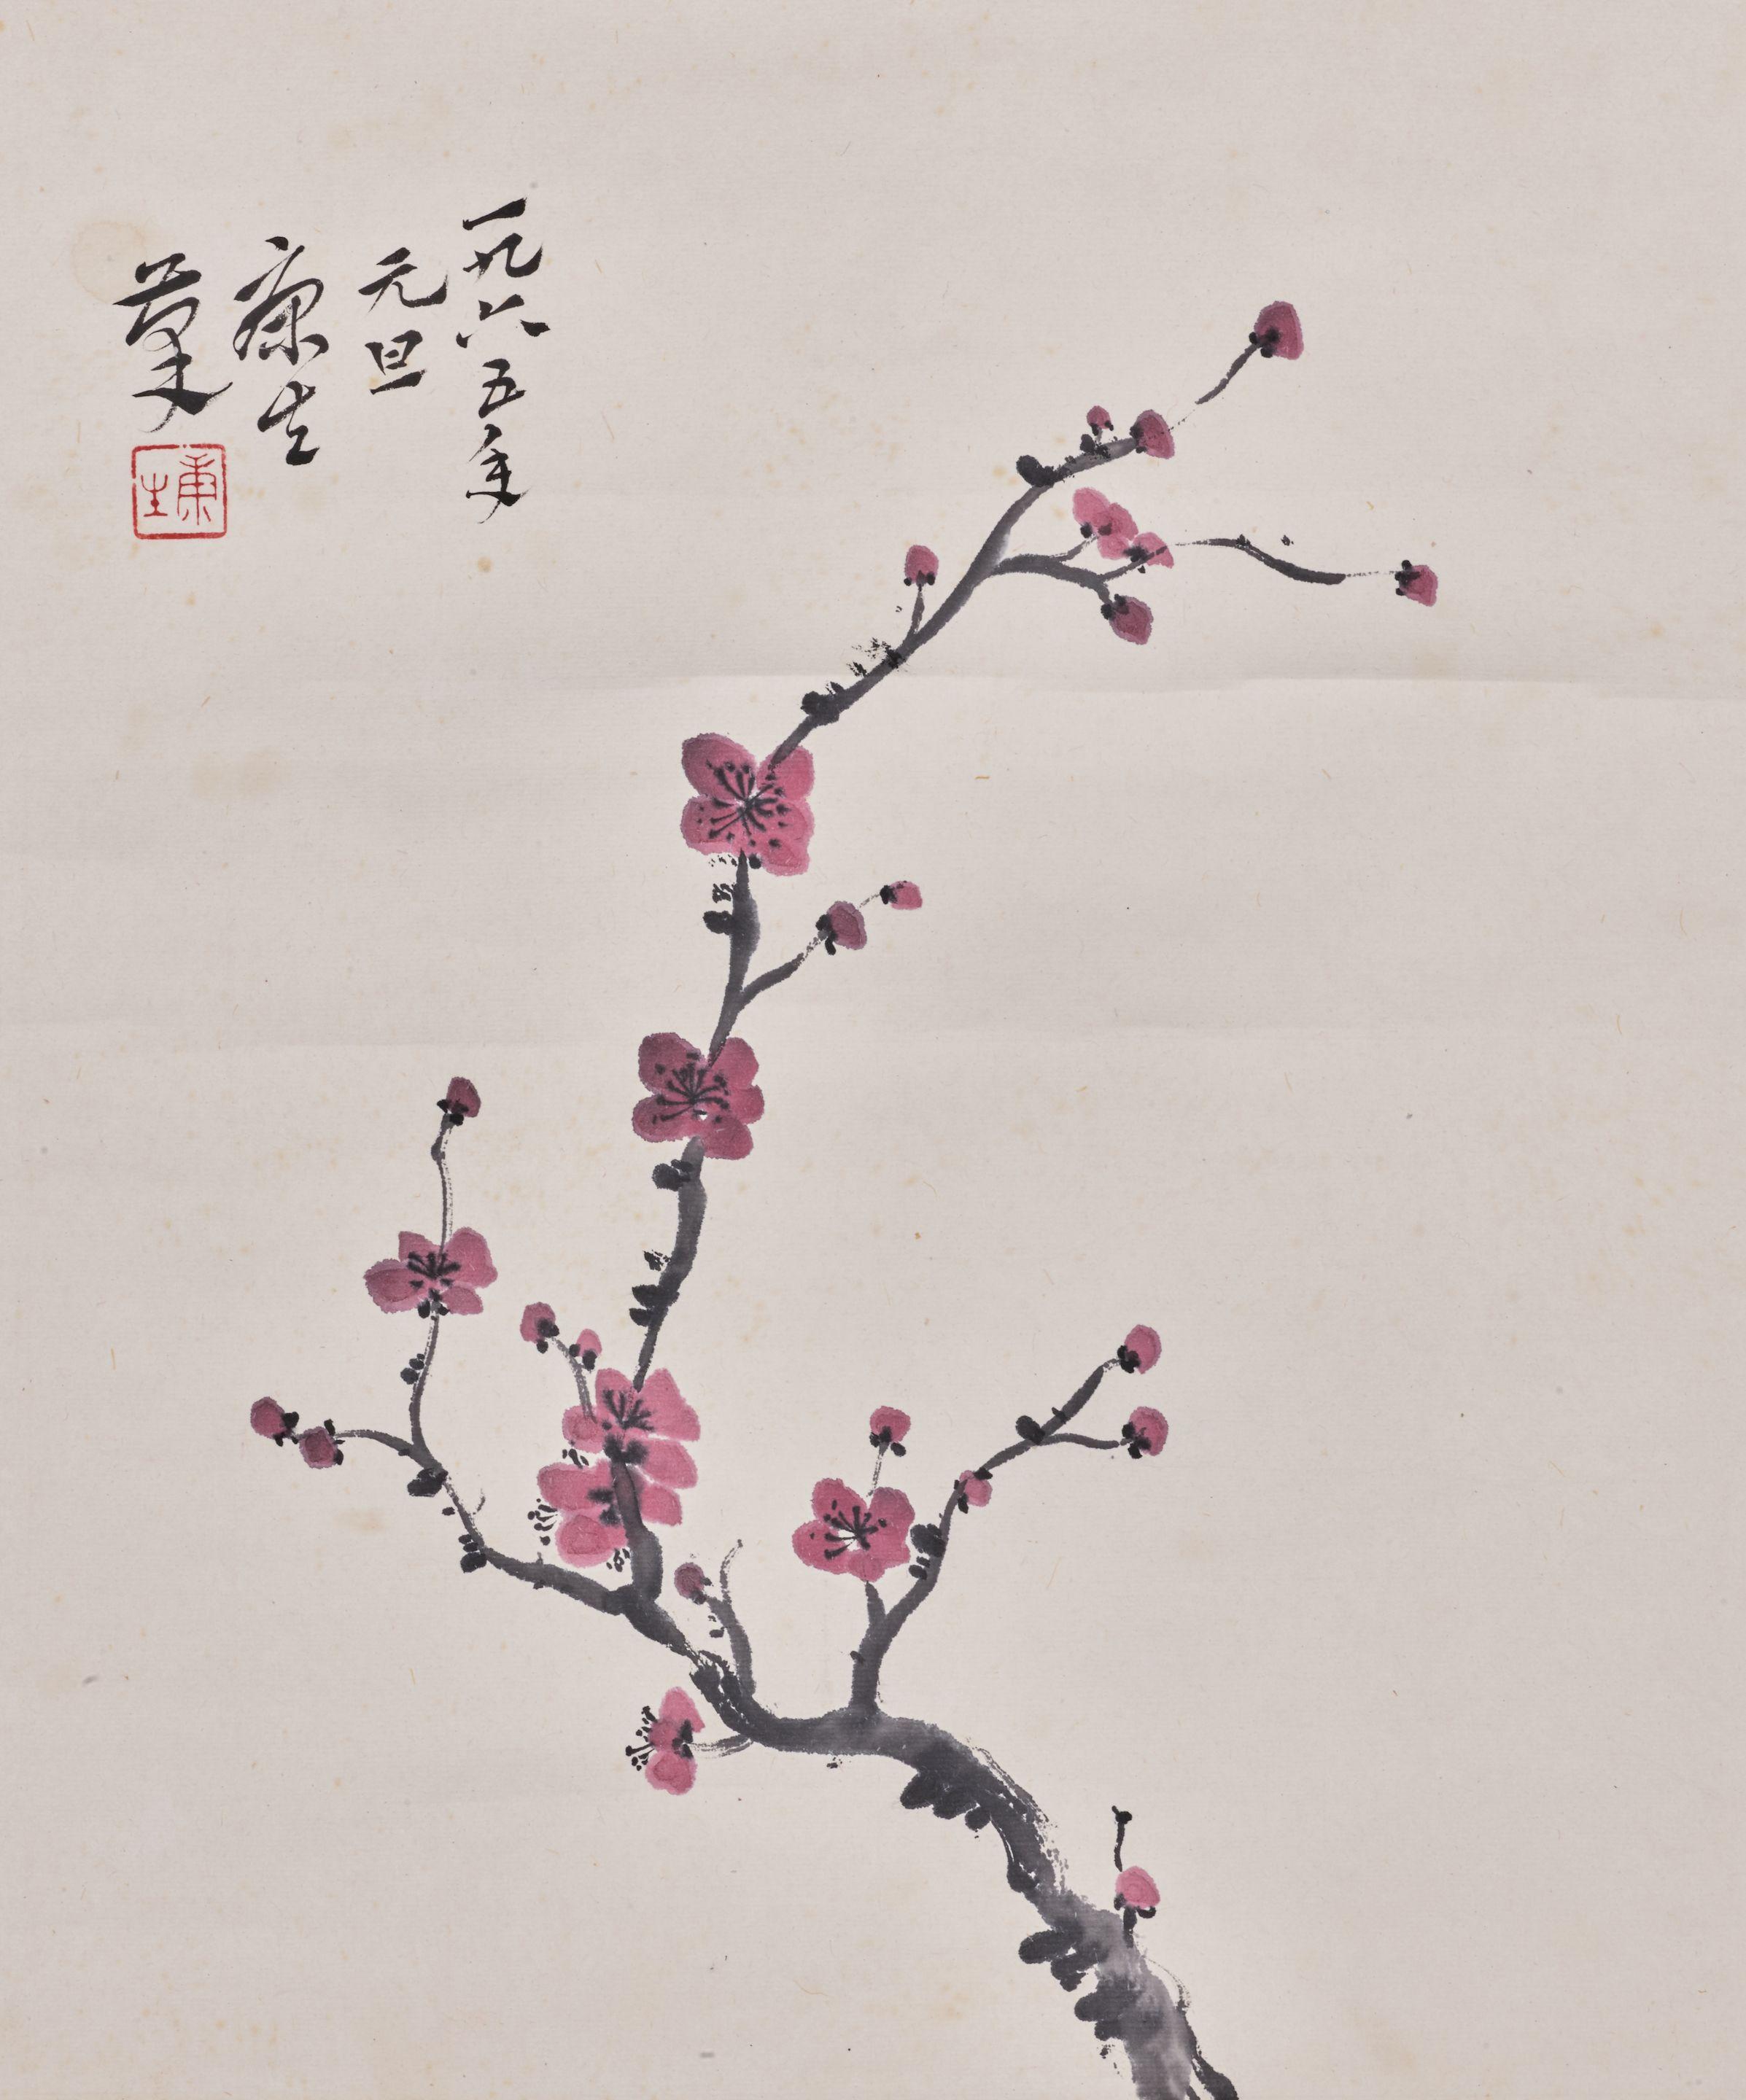 一九六五年
元旦
康生
草
康生